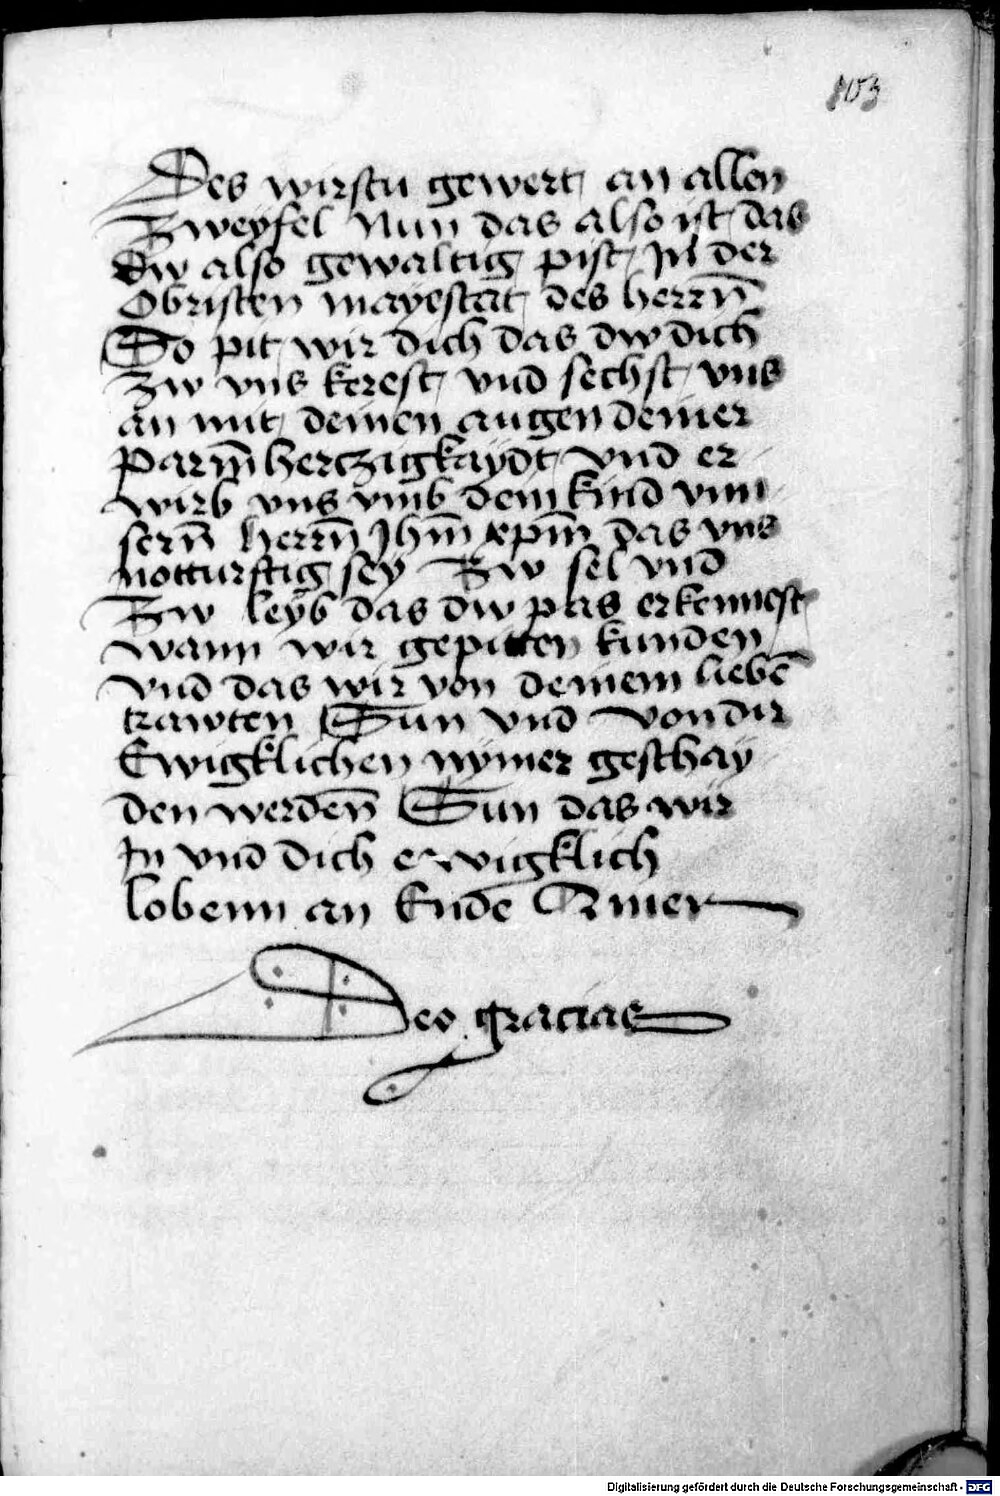 103
Des wirstu gewert an allen
Zweyfel Nun das also ist das
dw also gewaltig pist In der
Obristen mayestat des herrn̄
So pit wir dich das dw dich
zw vns kerest vnd sechst vns
an mit deinen augen deiner
parm̄hertzigkaydt vnd er
wirb vns vmb dein kind vnn
sern̄ herrn̄ Jhm̄ xpm̄ das vns
notturftig sey Zw sel vnd
Zw leyb das dw pas erkennest
wann wir gepitten kunden
vnd das wir von deinem liebē
trawten Sun vnd von dir
Ewigklichen nymer geschay
den werden̄ Sun das wir
In vnd dich ewigklich
lobenn an Ende Amen
Deo gracias
Digitalisierung gefördert durch die Deutsche Forschungsgemeinschaft - DFG